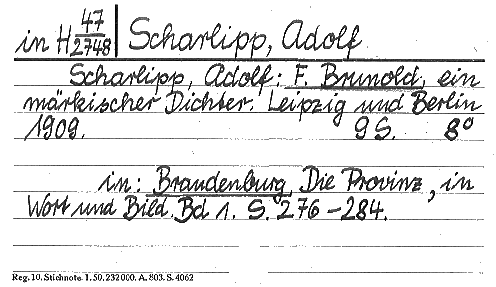 in H 47/2748 Scharlipp, Adolf
Scharlipp, Adolf: F. Brunold, ein
märkischer Dichter. Leipzig und Berlin
1909. 9 S. 8°
in: Brandenburg, Die Provinz, in
Wort und Bild. Bd 1. S. 276-284.
Reg. 10. Stichnote. 1. 50. 232 000. A. 803. S. 4062